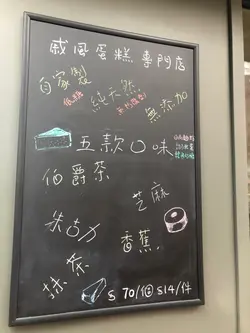 戚風蛋糕專門店
自家製
低糖
純天然
無添加
五款口味
伯爵茶
芝麻
朱古力
香蕉
抹茶
$ 70/個 $14/件